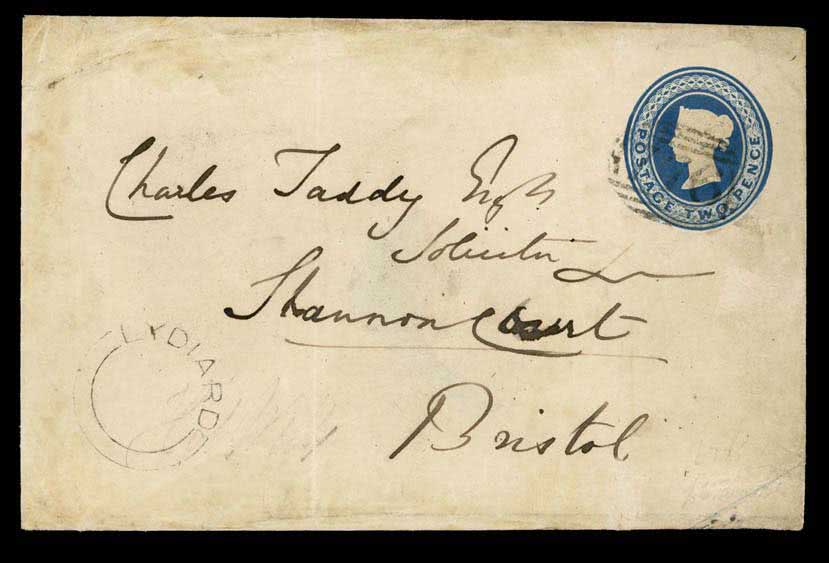 POSTAGE TWO PENCE
Charles Taddy Esqr
Solicitor
Shannon Court
LYDIARD
Bristol